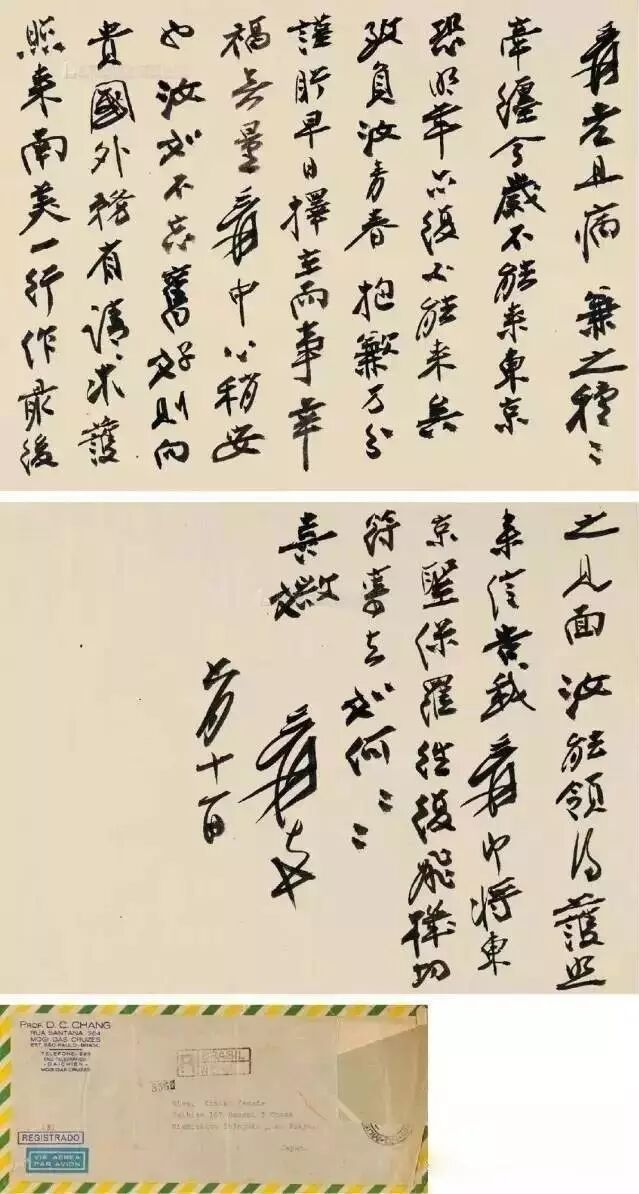 爰老且病 兼之種〻
牽纏今歲不能来東京
恐明年亦復不能来矣
致負汝青春 抱歉万分
謹盼早日擇主而事幸
福無量 爰中心稍安
也 汝如不忘舊好則向
貴國外務省請求護
照来南美一行作最後
之見面 汝能領得護照
来信告我 爰即將東
京聖保羅往復飛機切
符寄去如何〻
喜
爰
月十一日
PROF. D. C. CHANG
RUA SANTANA, 364
MOGI DAS CRUZES
EST. SÃO PAULO-BRASIL
TELEFONE: 993
END. TELEGRÁFICO
- DAICHIEN -
MOGI DAS CRUZES
R BRASIL
REGISTRADO
VIA AEREA
PAR AVION
Japan.